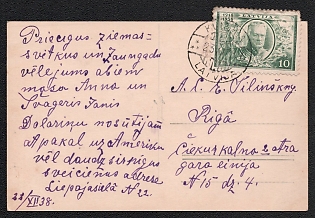 Priecigus ziemas-
svētkus un Jaungadu
vēlejums abiem
māsa Anna un
Svageris Janis
Dolariņu nosūtijām
atpakal uz Ameriku
vēl daudz sirsnigas
sveicienus adresa
Liepajasielā N 22.
22/XII 38.
LATVIJA
10
LATVIJA
A. l. E. Silinskny.
Rīgā
Čiekurkalna 2 otra
gara linija
N 15 dz. 4.